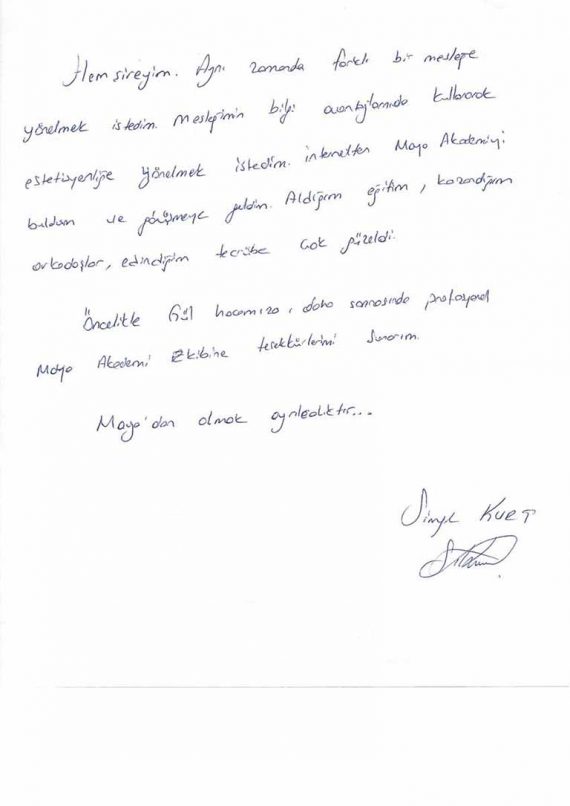 Hemşireyim. Aynı zamanda farklı bir mesleğe
yönelmek istedim. Mesleğimin bilgi avantajlarınıda kullanarak
estetisyenliğe yönelmek istedim. internetten Maya Akademiyi
buldum ve görüşmeye geldim. Aldığım eğitim, kazandığım
arkadaşlar, edindiğim tecrübe çok güzeldi.
Öncelikle Gül hocamıza, daha sonrasında profosyonel
Maya Akademi Ekibine teşekkürlerimi sunarım.
Maya'dan olmak ayrıcalıktır...
KURT